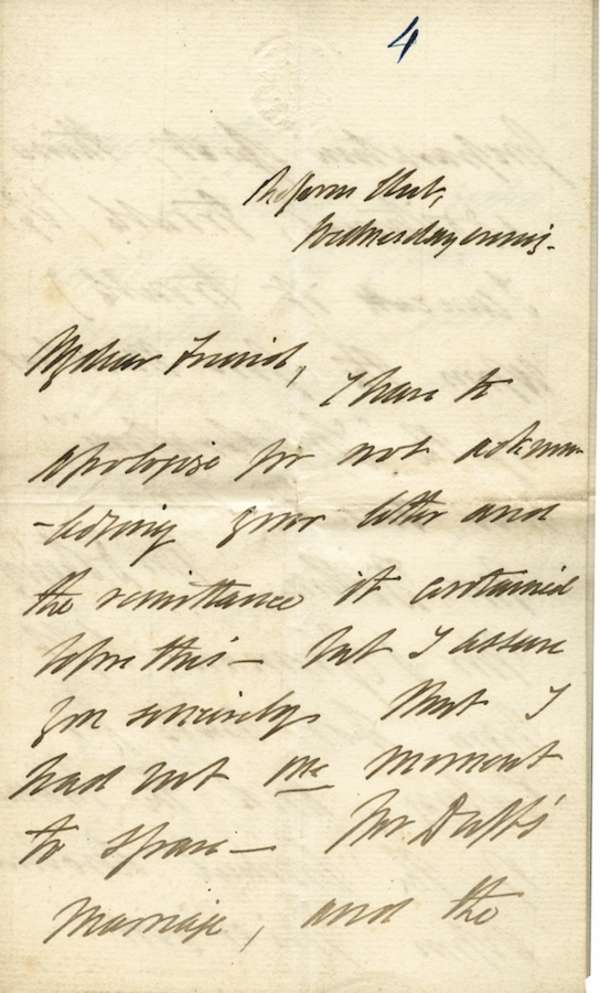 4
Reform Club,
Wednesday evening.
My dear Friend,
I have to
apologise for not acknow-
-ledging your letter and
the remittance it contained
before this — but I assure
you sincerely that I
had not one moment
to spare — Mr. Duff's
marriage, and the